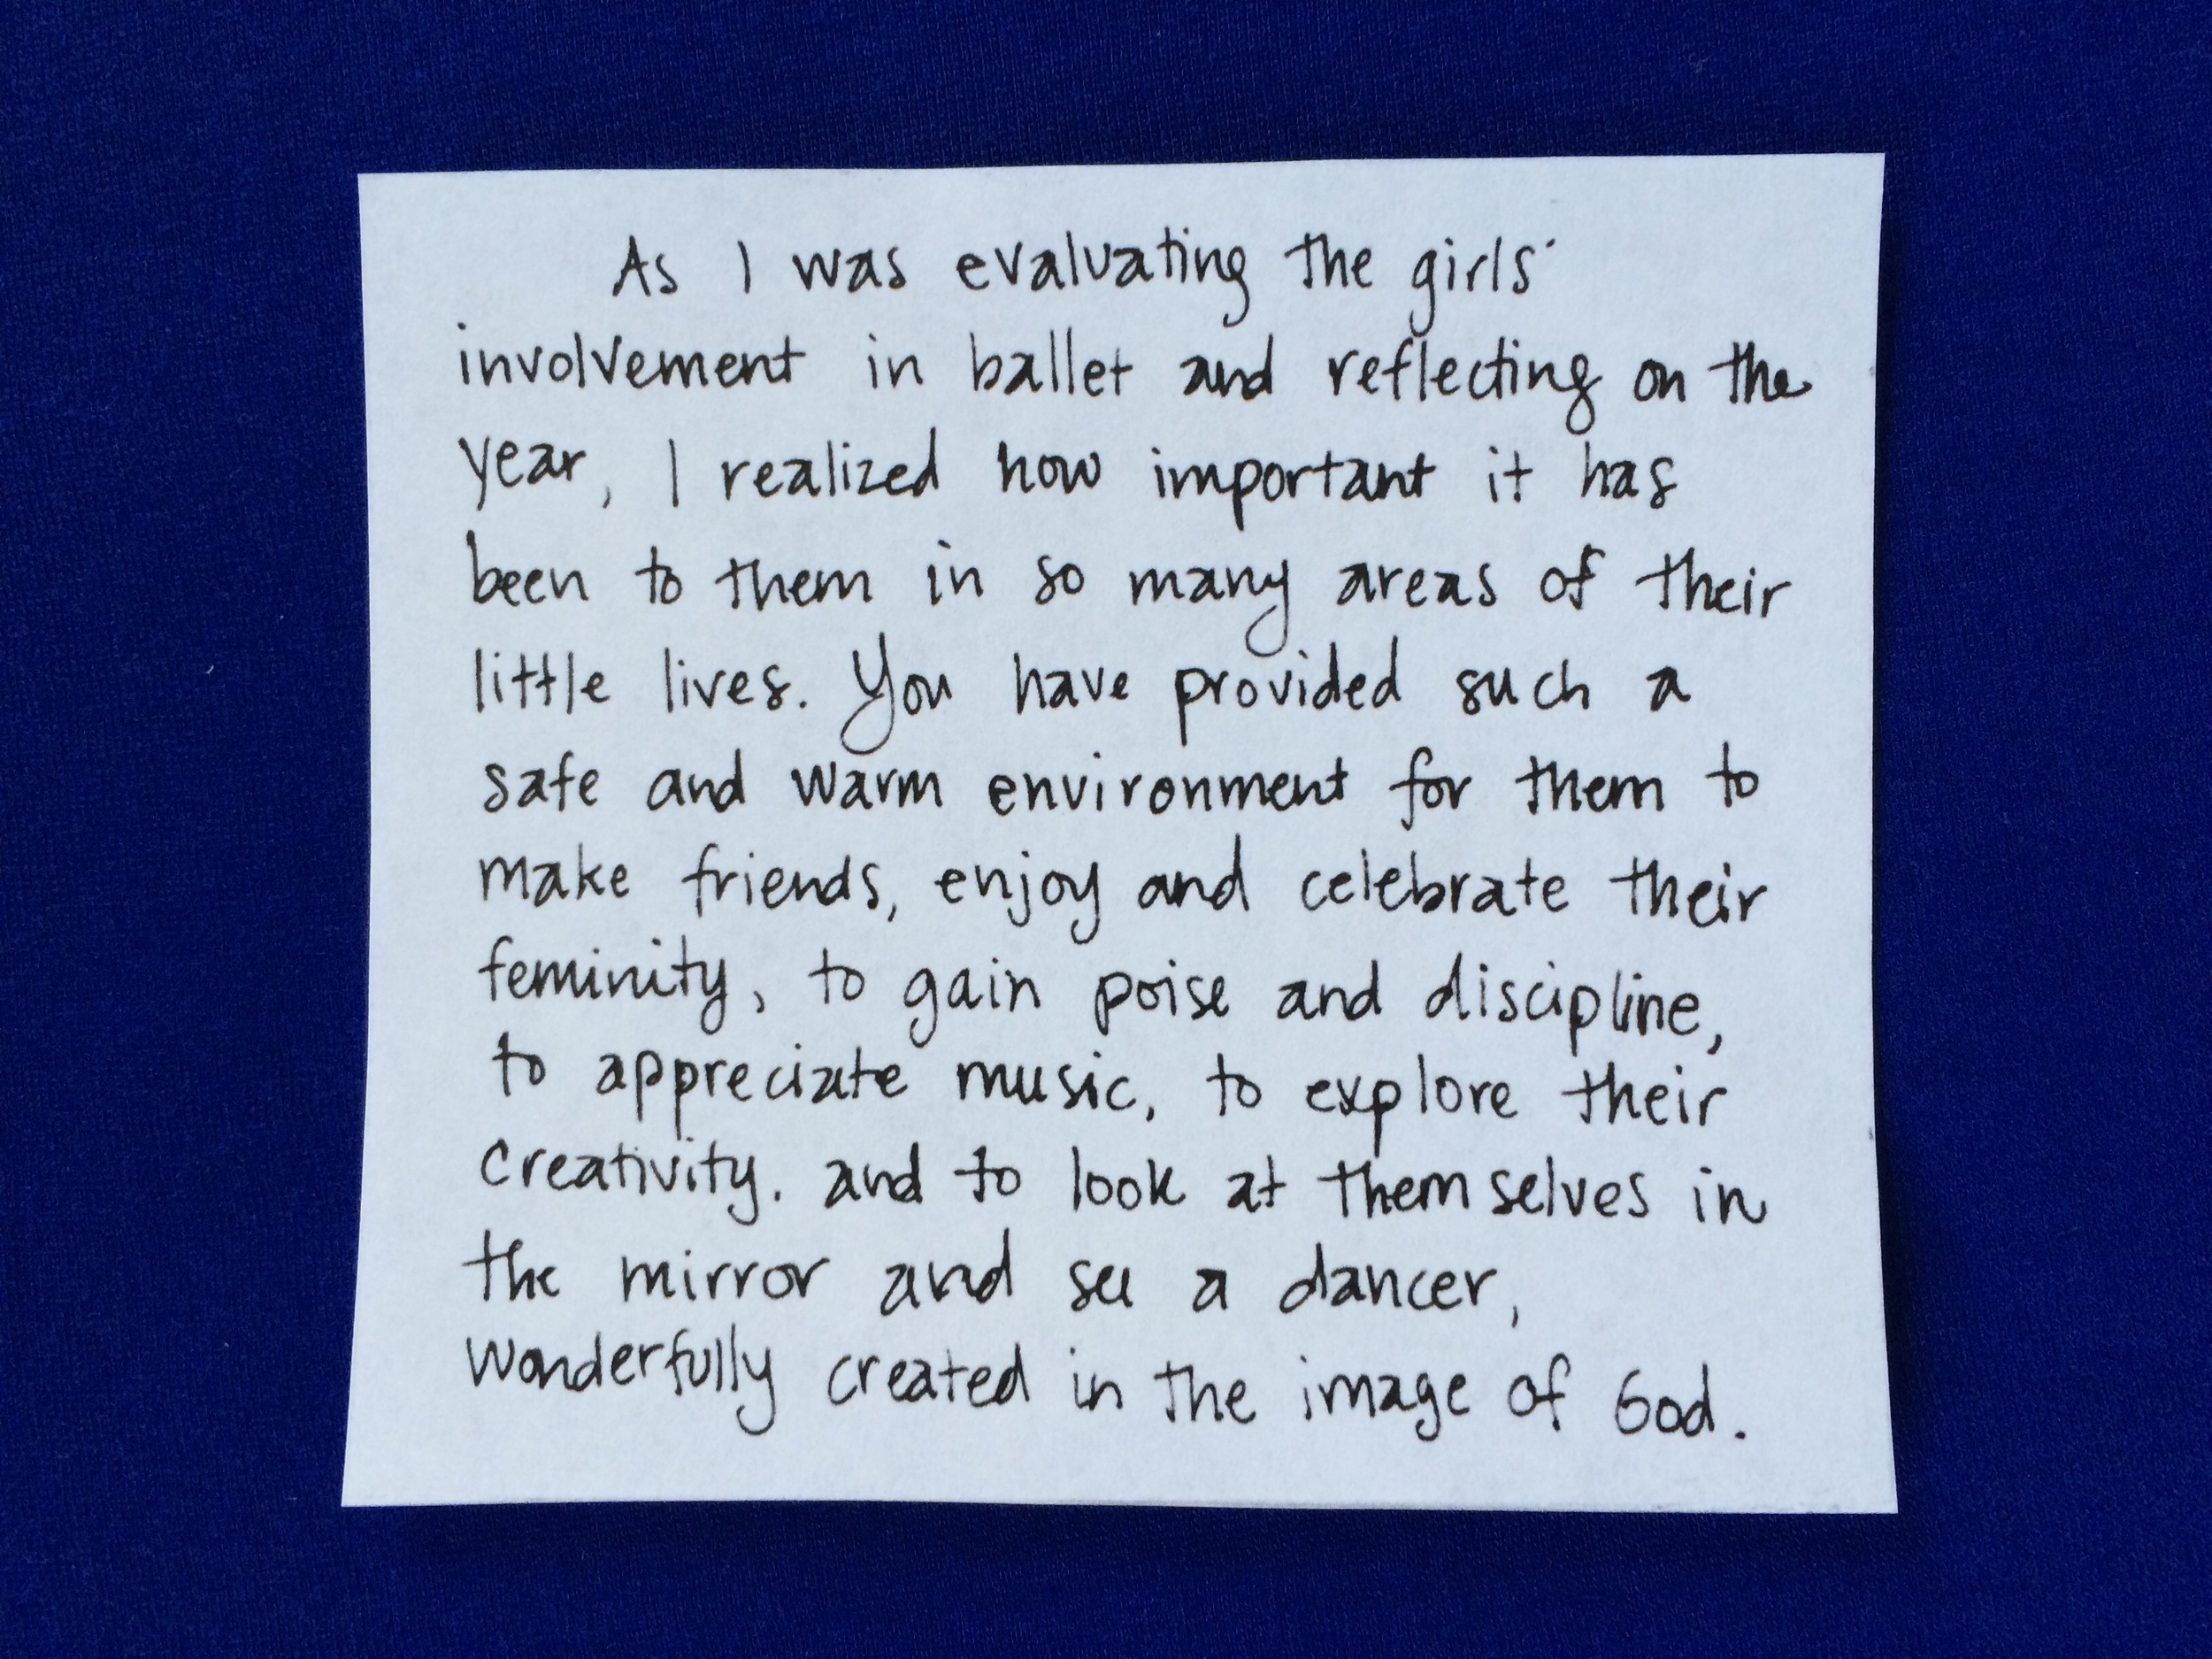 As I was evaluating the girls'
involvement in ballet and reflecting on the
year, I realized how important it has
been to them in so many areas of their
little lives. You have provided such a
safe and warm environment for them to
make friends, enjoy and celebrate their
feminity, to gain poise and discipline,
to appreciate music, to explore their
creativity. and to look at themselves in
the mirror and see a dancer,
wonderfully created in the image of God.